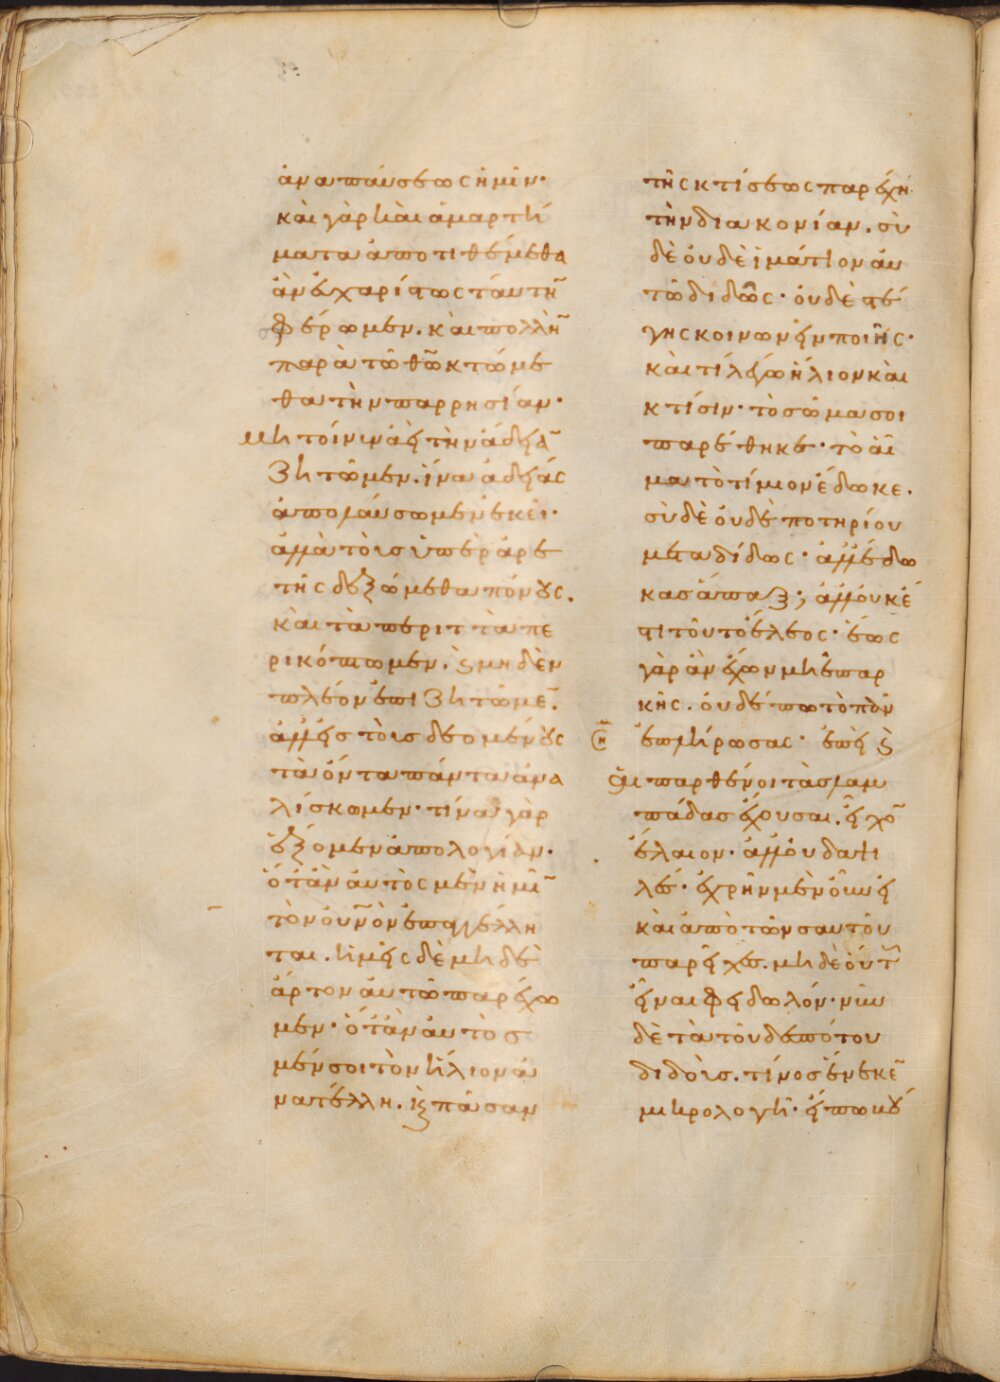 ἀναπαύσεως ἡμῖν·
καὶ γὰρ καὶ ἁμαρτή
ματα ἀποτιθέμεθα
ἂν εὐχαρίστως ταύτη̄
φέρωμεν. καὶ πολλὴ̄
παρὰ τῶ θῶ κτώμε
θα τὴν παρρησίαν·
μὴ τοίνυν ἀεὶ τὴν ἄδειᾱ
ζητῶμεν. ἵνα ἀδείας
ἀπολαύσωμεν ἐκεῖ·
ἀλλὰ τοὺς ὑπὲρ ἀρε
τῆς δεξώμεθα πόνους.
καὶ τὰ περιττὰ πε
ρικόπτωμεν. καὶ μηδὲν
πλέον ἐπιζητῶμε̄.
ἀλλ' εἰς τοὺς δεομένους
τὰ ὄντα πάντα ἀνα
λίσκωμεν· τίνα γὰρ
ἕξομεν ἀπολογίαν·
ὅταν αὐτὸς μὲν ἡμῖ̄
τὸν οὐνὸν ἐπαγγέλλη
ται. ἡμεῖς δὲ μηδὲ
ἄρτον αὐτῶ παρέχω
μεν· ὅταν αὐτὸσ
μέν σοι τὸν ἥλιον ἀ
νατέλλη. καὶ πᾶσαν
τῆς κτίσεως παρέχη
τὴν διακονίαν. σὺ
δὲ οὐδὲ ἱμάτιον αὐ
τῶ διδῶς· οὐδὲ στέ
γης κοινωνεῖν ποιῆς·
καὶ τί λέγω ἥλιον καὶ
κτίσιν· τὸ σῶμα σοι
παρέθηκε· τὸ αἷ
μα τὸ τίμιον ἔδωκε.
σὺ δὲ οὐδὲ ποτηρίου
μεταδίδως· ἀλλ' ἔδω
κας ἅπαξ; ἀλλ' οὐκ ἔ
στι τοῦτο ἔλεος· ἕως
γὰρ ἂν ἔχων μὴ ἐπαρ
κῆς. οὐδέπω τὸ πᾶν
ἐπλήρωσας· ἐπεὶ καὶ
αἱ παρθένοι τὰς λαμ
πάδας ἔχουσαι. εἶχο̄
ἔλαιον· ἀλλ' οὐ δαψι
λέ· ἐχρῆν μὲν οὖν εἰ
καὶ ἀπὸ τῶν σαυτοῦ
παρεῖχες. μηδὲ οὕτ̄
εἶναι φειδωλόν· νῦν
δὲ τὰ τοῦ δεσπότου
διδοὺς. τίνος ἕνεκε̄
μικρολογῆ· εἴπω κού